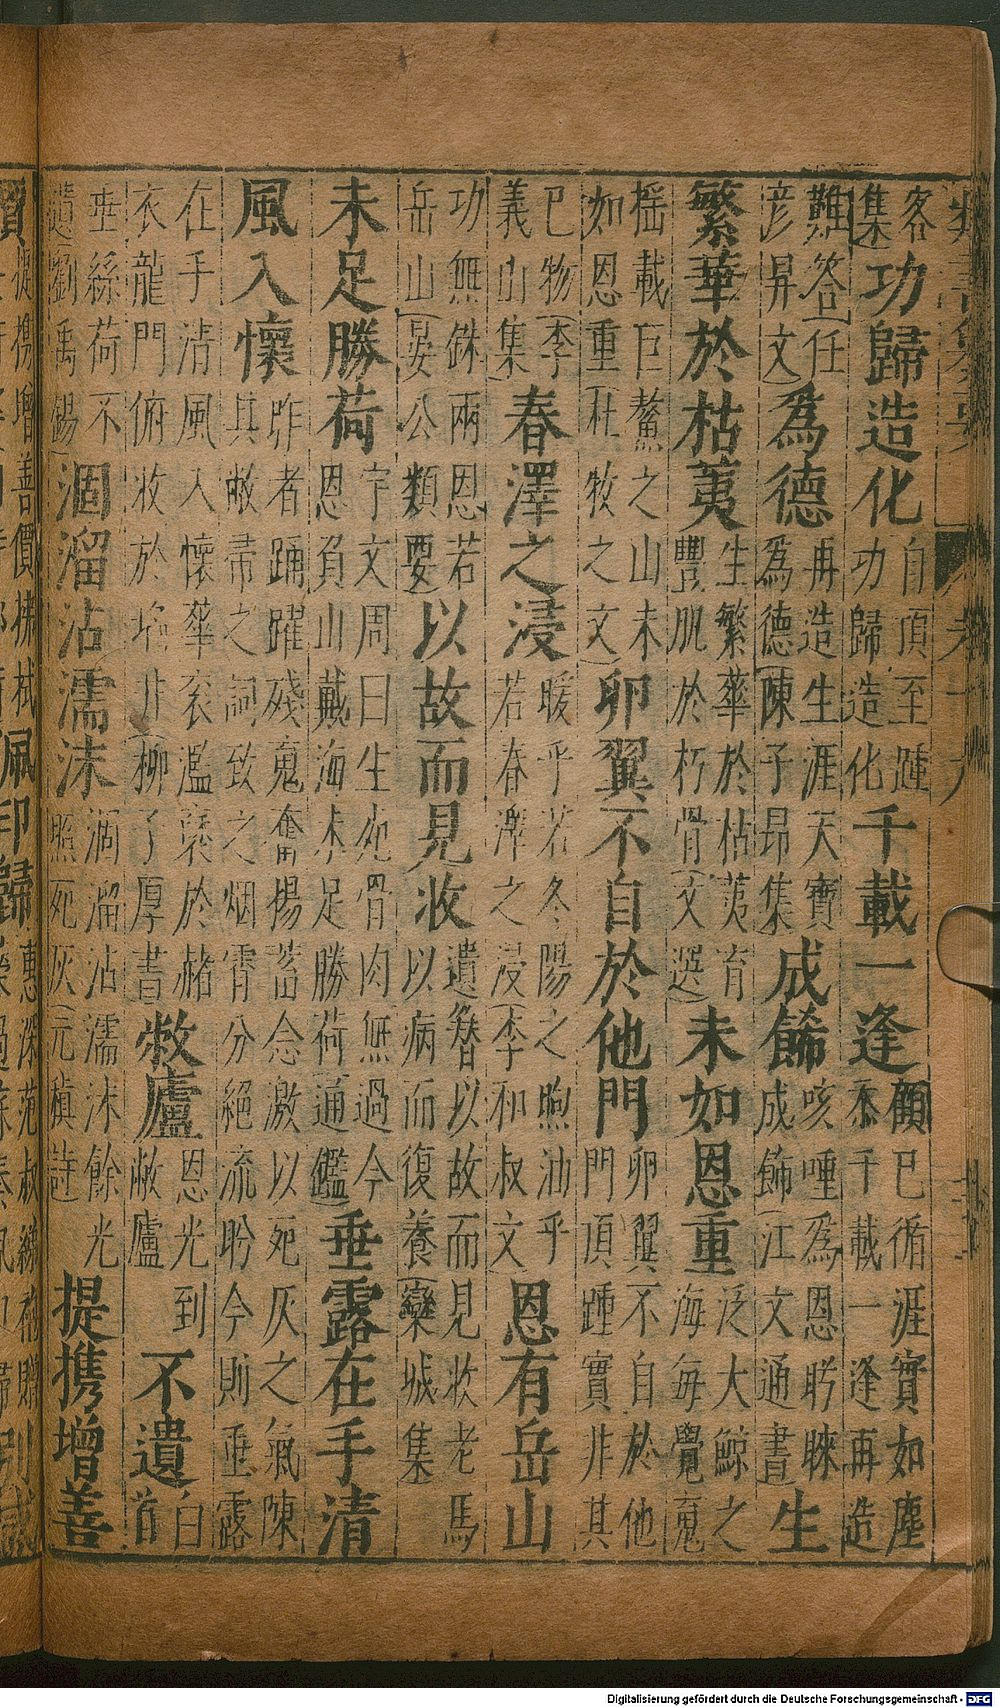 客
集
功歸造化
自頂至踵
功歸造化
千載一逢
顧已循涯實如塵
忝千載一逢再造
難答(任
彦昇文)
爲德
再造生涯天實
爲德(陳子昂集
成餙
咳唾爲恩眄睞
成飾(江文通書)
生
繁華於枯荑
生繁華於枯荑育
豐肌於朽骨(文選)
未如恩重
泛大鯨之
海每覺䰟
摇載巨鰲之山未
如恩重(杜牧之文)
卵翼不自於他門
卵翼不自於他
門頂踵實非其
已物(李
義山集)
春澤之浸
暖乎若冬陽之煦油乎
若春澤之浸(李和叔文)
恩有岳山
功無銖兩恩若
岳山(晏公類要)
以故而見收
遺簪以故而見收老馬
以病而復養(欒城集
未足勝荷
宇文周曰生死骨肉無過今
恩負山戴海未足勝荷(通鑑)
垂露在手清
風入懷
昨者踊躍殘䰟奮揚蓄念激以死灰之氣陳
其敝帚之詞致之烟霄分絕流眄今則垂露
在手清風入懷華衮濫褎於赭
衣龍門俯收於埳井(柳子厚書
敝廬
恩光到
敝廬
不遺
白
首
垂絲荷不
遺(劉禹錫)
涸溜沾濡沫
涸溜沾濡沫餘光
照死灰(元稹詩
提携增善
Digitalisierung gefördert durch die Deutsche Forschungsgemeinschaft - DFG